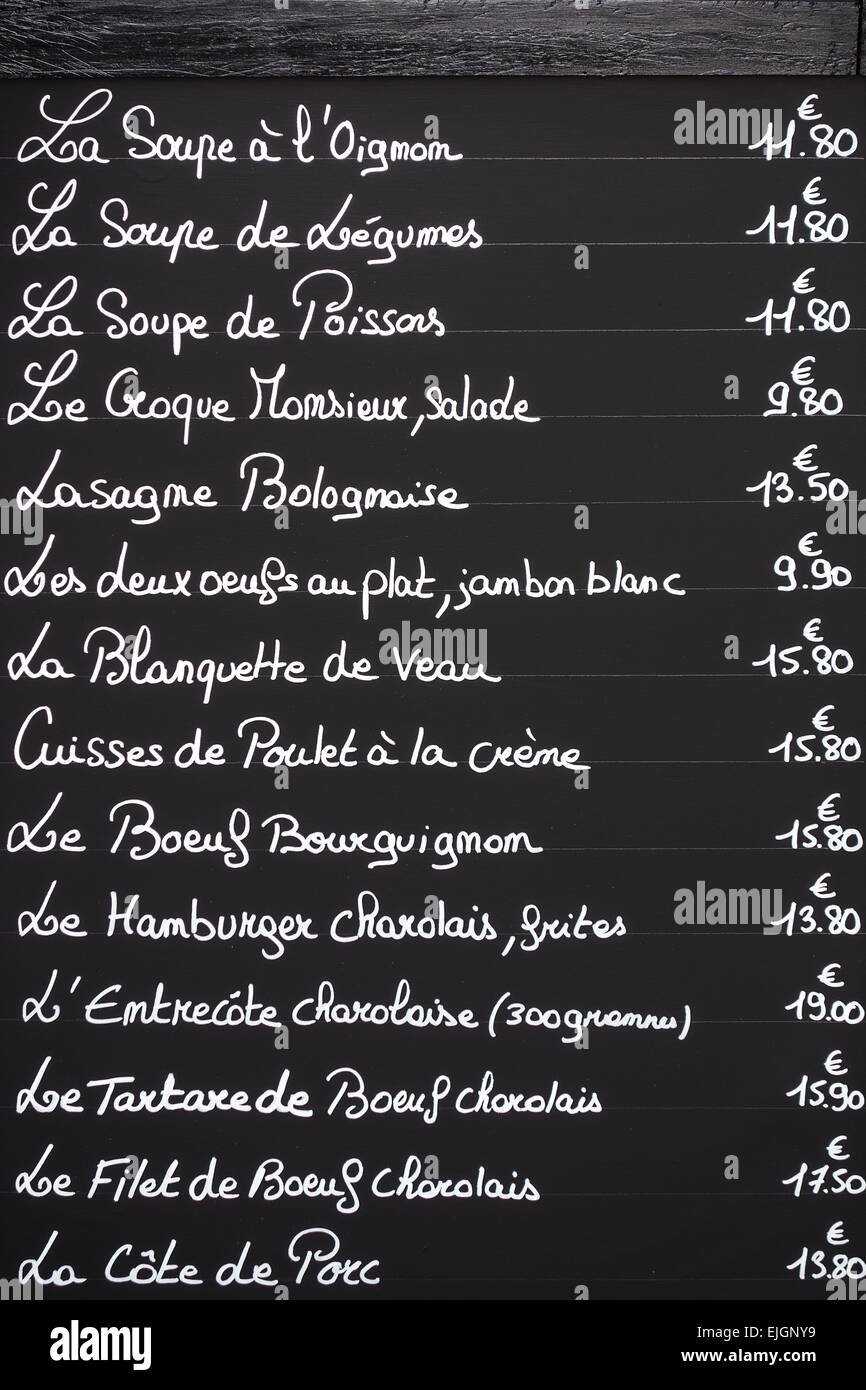 La Soupe à l'Oignon € 11.80
La Soupe de Légumes € 11.80
La Soupe de Poissons € 11.80
Le Croque Monsieur, salade € 9.80
Lasagne Bolognaise € 13.50
Les deux oeufs au plat, jambon blanc € 9.90
La Blanquette de Veau € 15.80
Cuisses de Poulet à la crème € 15.80
Le Boeuf Bourguignon € 15.80
Le Hamburger charolais, frites € 13.80
L'Entrecôte charolaise (300grammes) € 19.00
Le Tartare de Boeuf charolais € 15.90
Le Filet de Boeuf charolais € 17.50
La Côte de Porc € 13.80
alamy
Image ID: EJGNY9
www.alamy.com